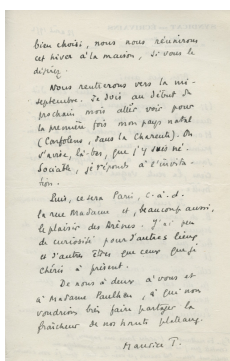 bien choisi, nous nous réunirons
cet hiver à la maison, si vous le
désirez.
Nous rentrerons vers la mi-
septembre. Je dois au début du
prochain mois aller voir pour
la première fois mon pays natal
(Confolens, dans la Charente). On
s'avise, là-bas, que j'y suis né.
Sociable, je réponds à l'invita-
tion.
Puis, ce sera Paris, c-à-d
la rue Madame et, beaucoup aussi,
le plaisir des Arènes. J'ai peu
de curiosité pour d'autres lieux
et d'autres êtres que ceux que je
chéris à présent.
De nous à deux à vous et
à Madame Paulhan, à qui nous
voudrions bien faire partager la
fraîcheur de nos hauts plateaux.
Maurice T.